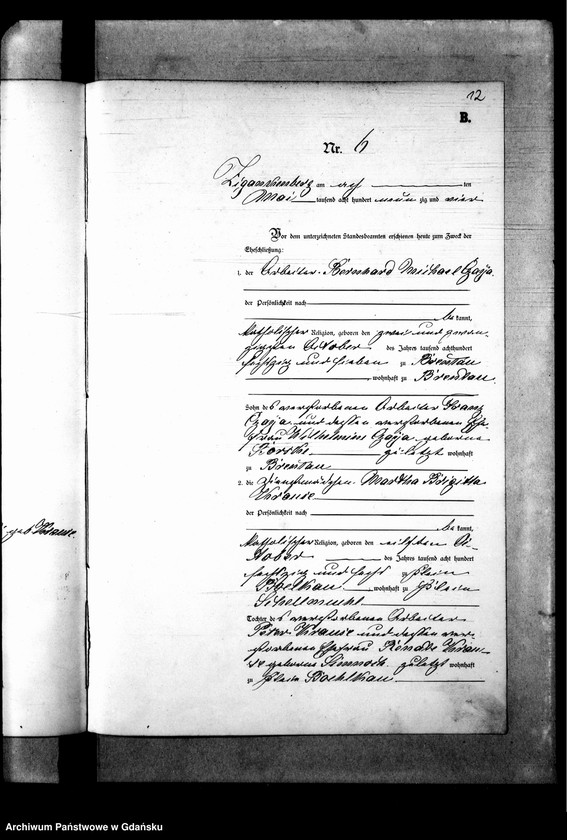 12
B.
Nr. 6
Zigankenberg am acht ten
Mai tausend acht hundert neun zig und vier
Vor dem unterzeichneten Standesbeamten erschienen heute zum Zweck der
Eheschließung:
1. der Arbeiter Bernhard Michael Czaja
der Persönlichkeit nach
be kannt,
katholischer Religion, geboren den zwei und zwan-
zigsten October des Jahres tausend achthundert
sechszig und sieben zu Brentau
wohnhaft zu Brentau
Sohn des verstorbenen Arbeiter Franz
Czaja und dessen verstorbenen Ehe-
frau Wilhelmine Czaja geborene
zuletzt wohnhaft
zu Brentau
2. die Dienstmädchen Martha Brigitta
Krause
der Persönlichkeit nach
be kannt,
katholischer Religion, geboren den elften Oc-
tober des Jahres tausend acht hundert
sechszig und sechs zu Klein
Boelkau wohnhaft zu Klein
Schellmühl
Tochter des verstorbenen Arbeiter
Peter Krause und dessen ver-
storbenen Ehefrau Renate Krau-
se geborene zuletzt wohnhaft
zu Klein Boelkau
geb. Krause.
Archiwum Państwowe w Gdańsku